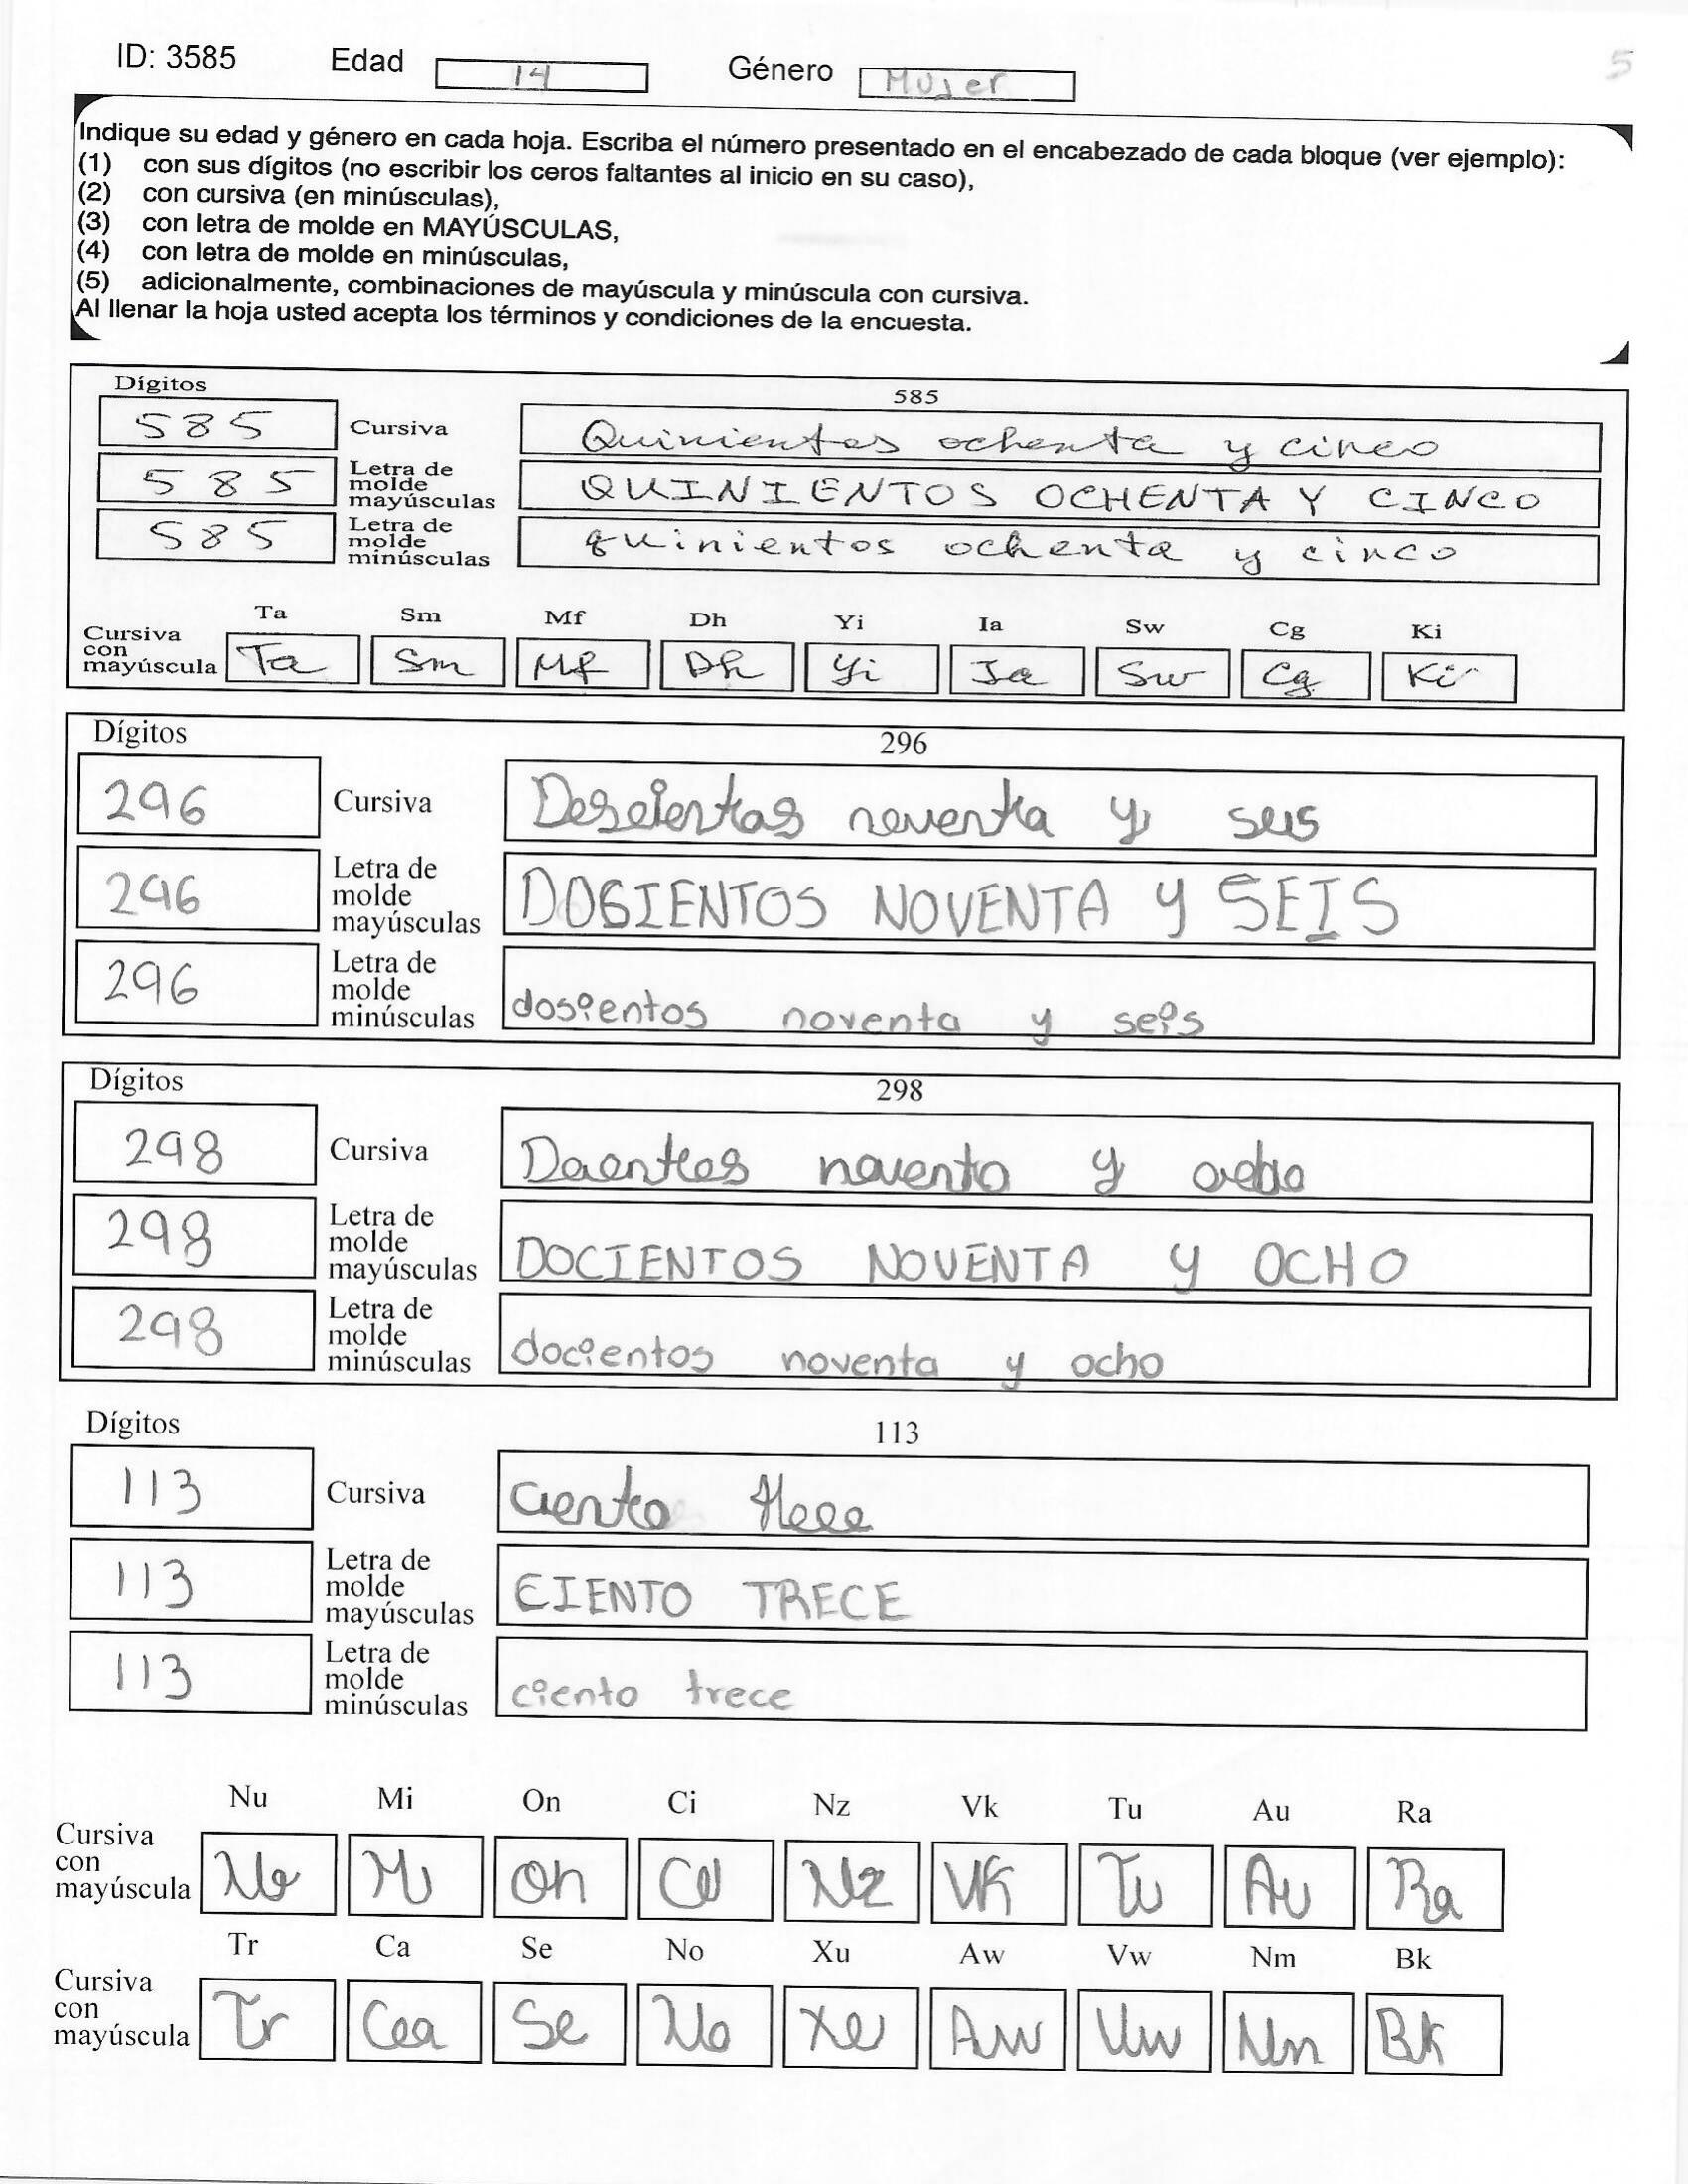 ID: 3585 Edad 14 Género Mujer 5
Indique su edad y género en cada hoja. Escriba el número presentado en el encabezado de cada bloque (ver ejemplo):
(1) con sus dígitos (no escribir los ceros faltantes al inicio en su caso),
(2) con cursiva (en minúsculas),
(3) con letra de molde en MAYÚSCULAS,
(4) con letra de molde en minúsculas,
(5) adicionalmente, combinaciones de mayúscula y minúscula con cursiva.
Al llenar la hoja usted acepta los términos y condiciones de la encuesta.
Dígitos 585
585 Cursiva Quinientos ochenta y cinco
585 Letra de molde mayúsculas QUINIENTOS OCHENTA Y CINCO
585 Letra de molde minúsculas quinientos ochenta y cinco
Ta Sm Mf Dh Yi Ia Sw Cg Ki
Cursiva con mayúscula Ta Sm Mf Dh Yi Ia Sw Cg Ki
Dígitos 296
296 Cursiva noventa y seis
296 Letra de molde mayúsculas DOSIENTOS NOVENTA y SEIS
296 Letra de molde minúsculas dosientos noventa y seis
Dígitos 298
298 Cursiva noventa y ocho
298 Letra de molde mayúsculas DOCIENTOS NOVENTA y OCHO
298 Letra de molde minúsculas docientos noventa y ocho
Dígitos 113
113 Cursiva ciento trece
113 Letra de molde mayúsculas CIENTO TRECE
113 Letra de molde minúsculas ciento trece
Nu Mi On Ci Nz Vk Tu Au Ra
Cursiva con mayúscula Mi On Ci Nz Vk Tu Au Ra
Tr Ca Se No Xu Aw Vw Nm Bk
Cursiva con mayúscula Tr Cea Se No Xu Aw Vw Nm Bk